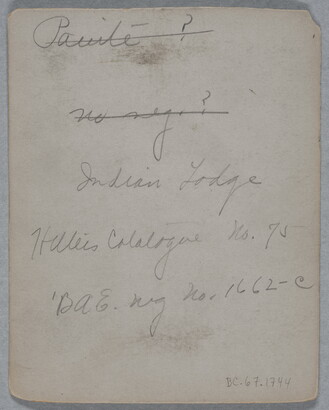 Paiute ?
no neg. ?
Indian Lodge
Hillers Catalogue No. 75
BAE. neg No. 1662-c
BC.67.1744